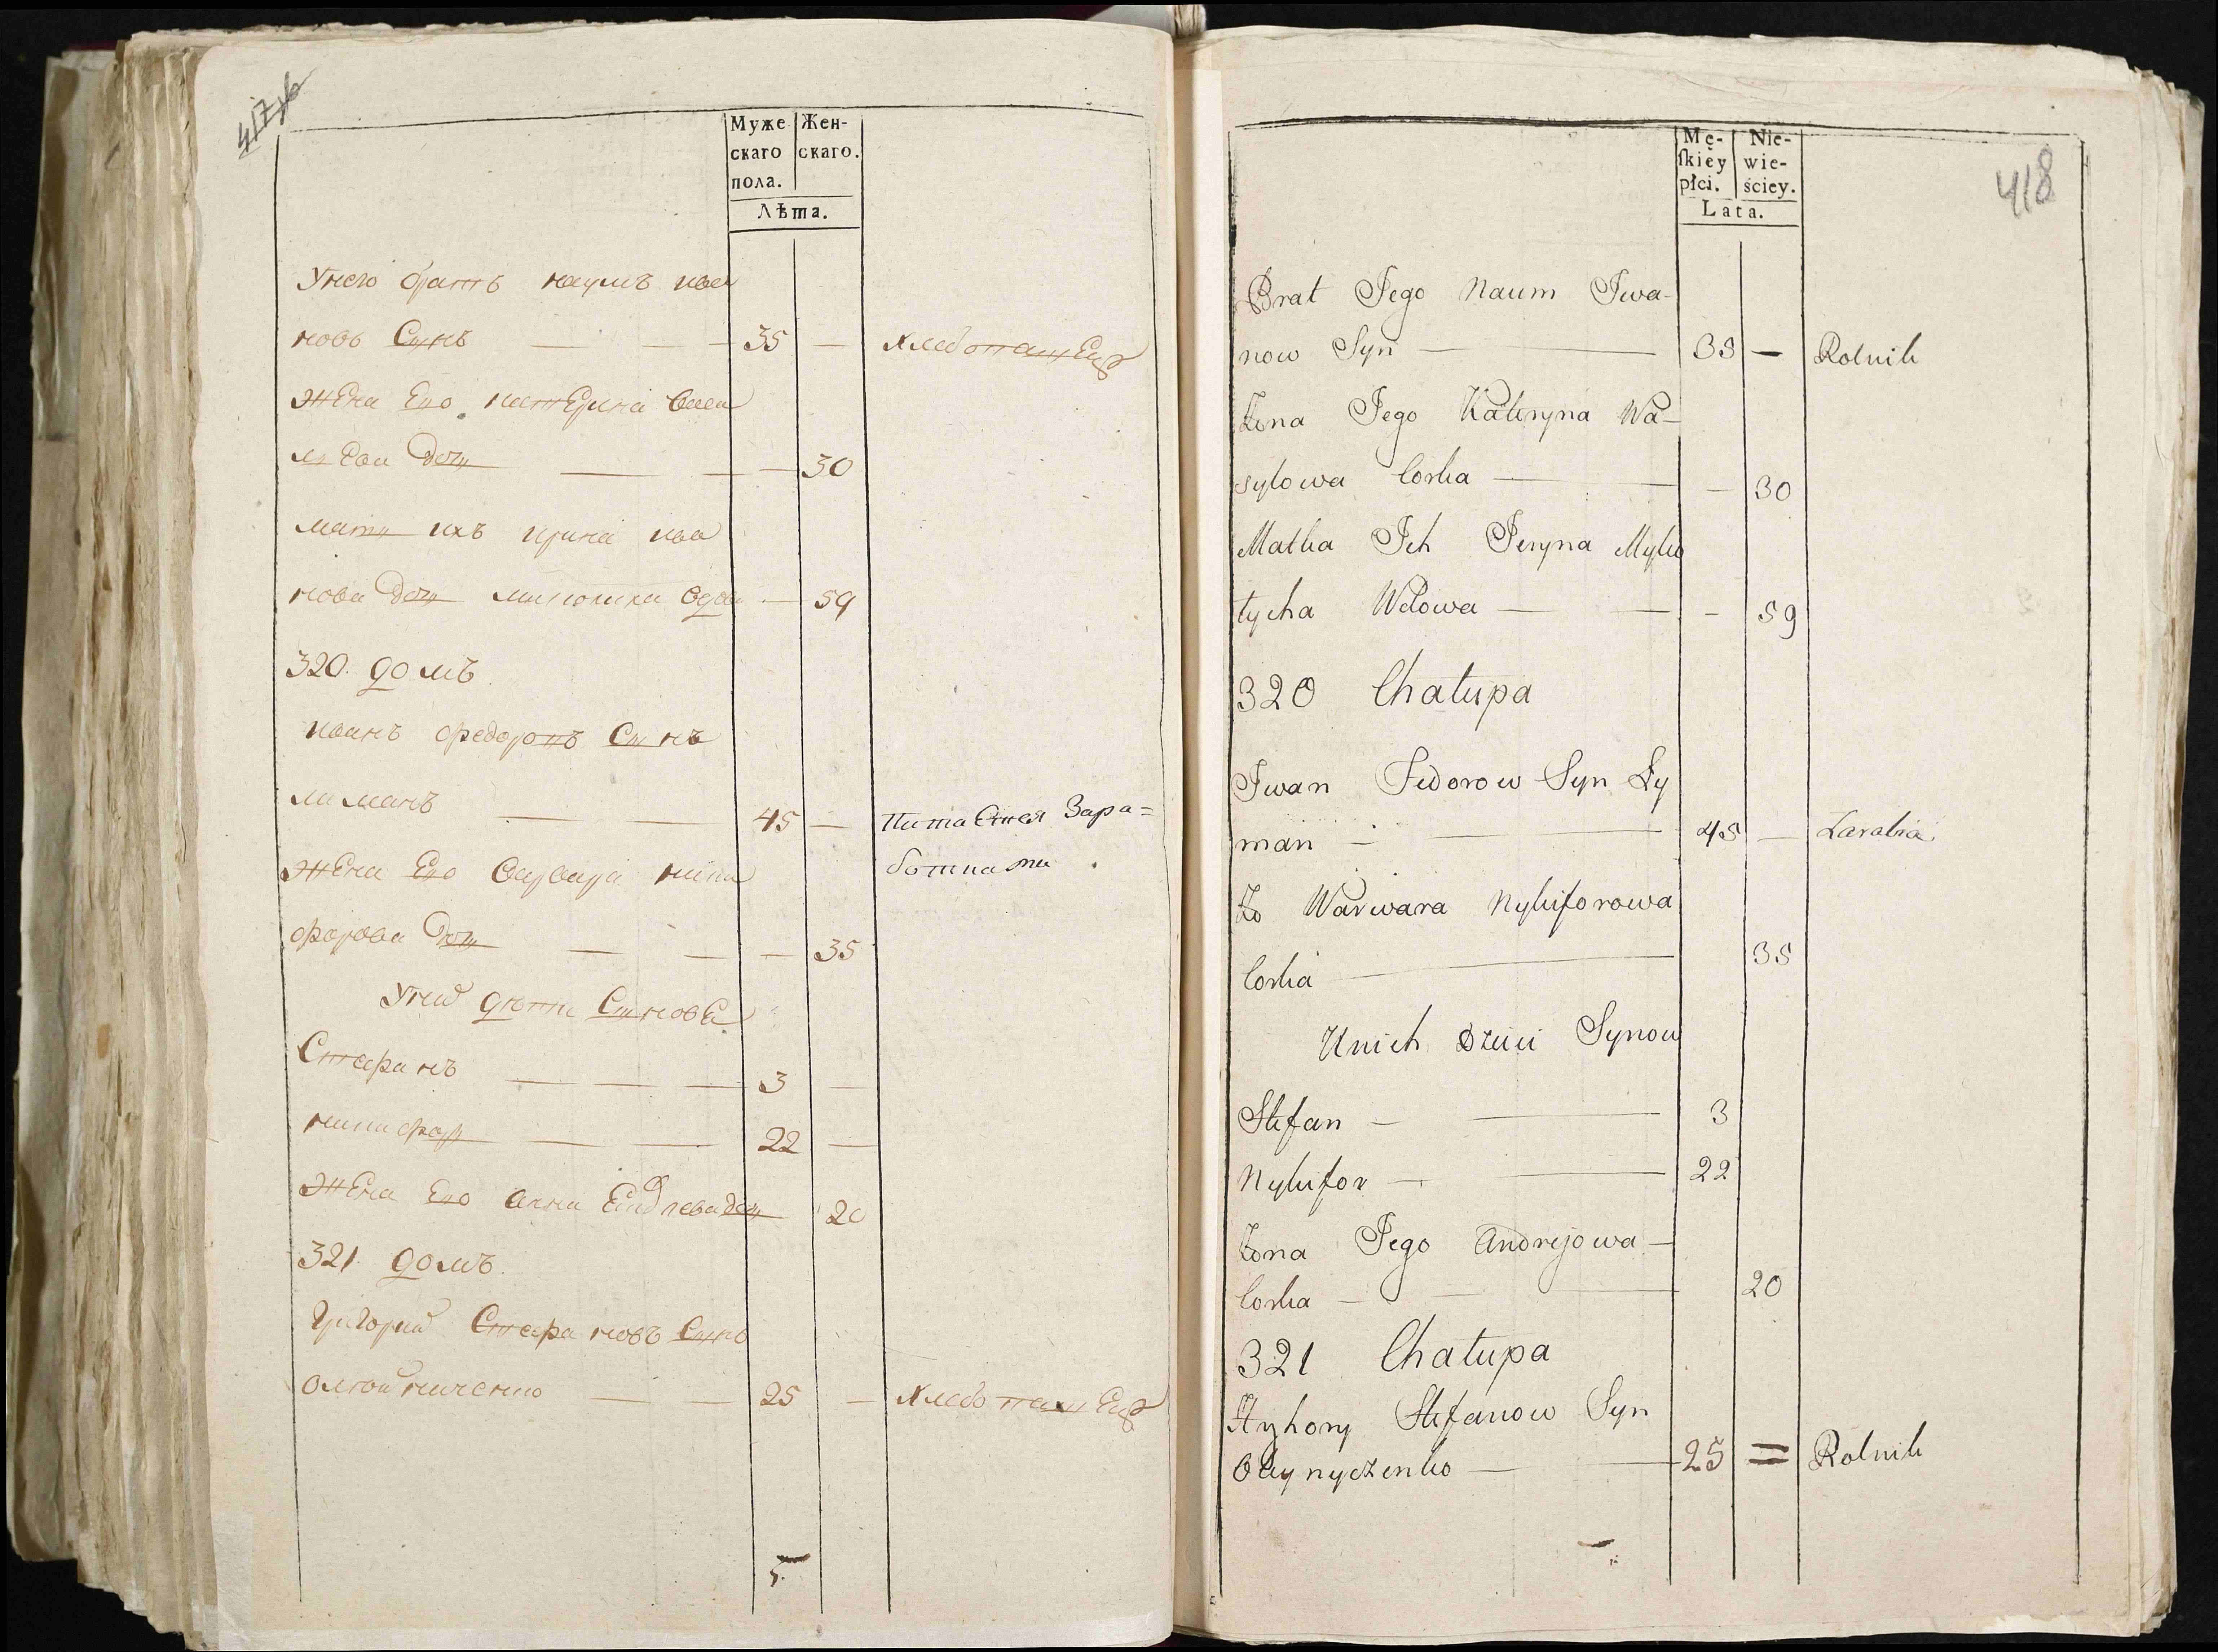 417 об
Муже Жен-
скаго скаго.
пола.
Лѣта.
Унего братъ наумъ ива
новъ Сынъ — — — 35 — хлебопашец
жена Его катерина васи
лева доч — — — 30
мати ихъ ирина ива
нова доч вдова — 59
320. домъ
иванъ федоровъ Сынъ
лиманъ — — 45 — питается Зара=
жена Его варвара ники ботками.
форова доч — — — 35
Уних дѣти Сынове
Стефанъ — — — 3 —
никифор — — 22 —
жена Его анна доч 20
321. домъ.
григорий Стефановъ Сынъ
олейниченко — — 25 — хлебопашец
5
418
Mę- Nie-
ſkiéy wie-
płci. ściey.
Lata.
Brat Jego Naum Iwa-
now Syn — — 35 — Rolnik
Żona Jego Kateryna Wa-
sylowa Corka — — — 30
Matka Ich Jeryna Myku
tycha Wdowa — — - 59
320 Chałupa
Iwan Fedorow Syn Ly
man - — 45 — Zarabia.
Żo Warwara Nykiforowa
Corka — 35
Unich Dzieci Synow
Stefan — — 3
Nykifor — — 22
Żona Jego Andrejowa —
Corka — — — 20
321 Chałupa
Hryhory Stefanow Syn
Oleynyczenko — — 25 = Rolnik